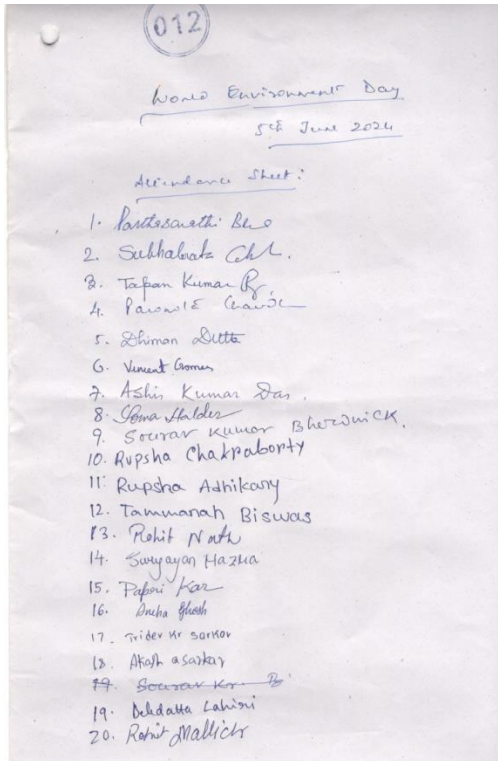 012
World Environment Day
5th June 2024
Attendance Sheet:
1. Parthasarathi
2. Subhabrata
3. Tapan Kumar
4.
5. Dhiman Dutta
6. Vincent Gomes
7. Ashis Kumar Das.
8. Soma Halder
9. Sourav Kumar Bhowmick.
10. Rupsha Chakraborty
11. Rupsha Adhikary
12. Tammanah Biswas
13. Rohit Nath
14. Suryayan Hazra
15. Papri Kar
16. Ghosh
17. Tridev Kr Sarkar
18. Akash
19. Sourav Kr.
19. Debdatta Lahiri
20. Rohit Mallick